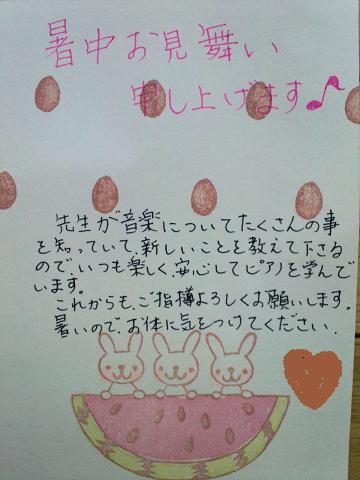 暑中お見舞い
申し上げます♪
先生が音楽についてたくさんの事
を知っていて、新しいことを教えて下さる
ので、いつも楽しく、安心してピアノを学んで
います。
これからも、ご指導よろしくお願いします。
暑いので、お体に気をつけてください。